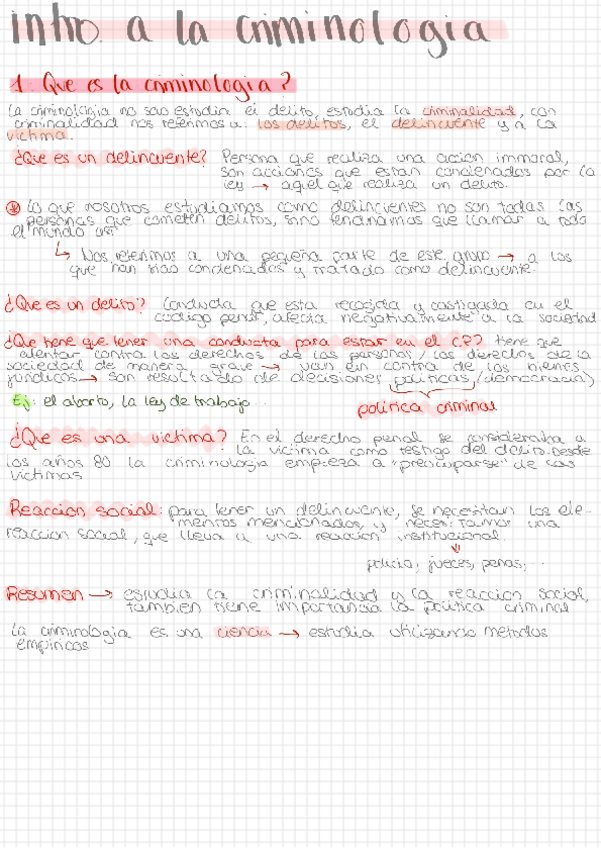 intro. a la criminologia
1. Que es la criminologia?
La criminologia no solo estudia el delito, estudia la criminalidad, con
criminalidad nos referimos a: los delitos, el delincuente y a la
victima.
¿Que es un delincuente? Persona que realiza una acción immoral,
son acciones que estan condenados por la
ley → aquel que realiza un delito.
lo que nosotros estudiamos como delincuentes no son todas las
personas que cometen delitos, sino tendriamos que llamar a todo
el mundo asi
↳ Nos referimos a una pequeña parte de este grupo → a los
que han sido condenados y tratado como delincuente.
¿Que es un delito? Conducta que esta recogida y castigada en el
codigo penal, afecta negativamente a la sociedad
¿Que tiene que tener una conducta para estar en el CP? tiene que
atentar contra los derechos de las personas / los derechos de la
sociedad de manera grave → van en contra de los bienes
juridicos → son resultado de decisiones politicas (democracia)
Ej: el aborto, la ley de trabajo...
politica criminal
¿Que es una victima? En el derecho penal se consideraba a
la victima como testigo del delito. Desde
los años 80 la criminologia empieza a "preocuparse" de las
victimas
Reaccion social: para tener un delincuente, se necesitan los ele-
mentos mencionados, y necesitamos una
reaccion social, que lleva a una reaccion institucional.
policia, jueces, penas, ...
Resumen → estudia la criminalidad y la reaccion social,
tambien tiene importancia la politica criminal
La criminologia es una ciencia → estudia utilizando metodos
empiricos